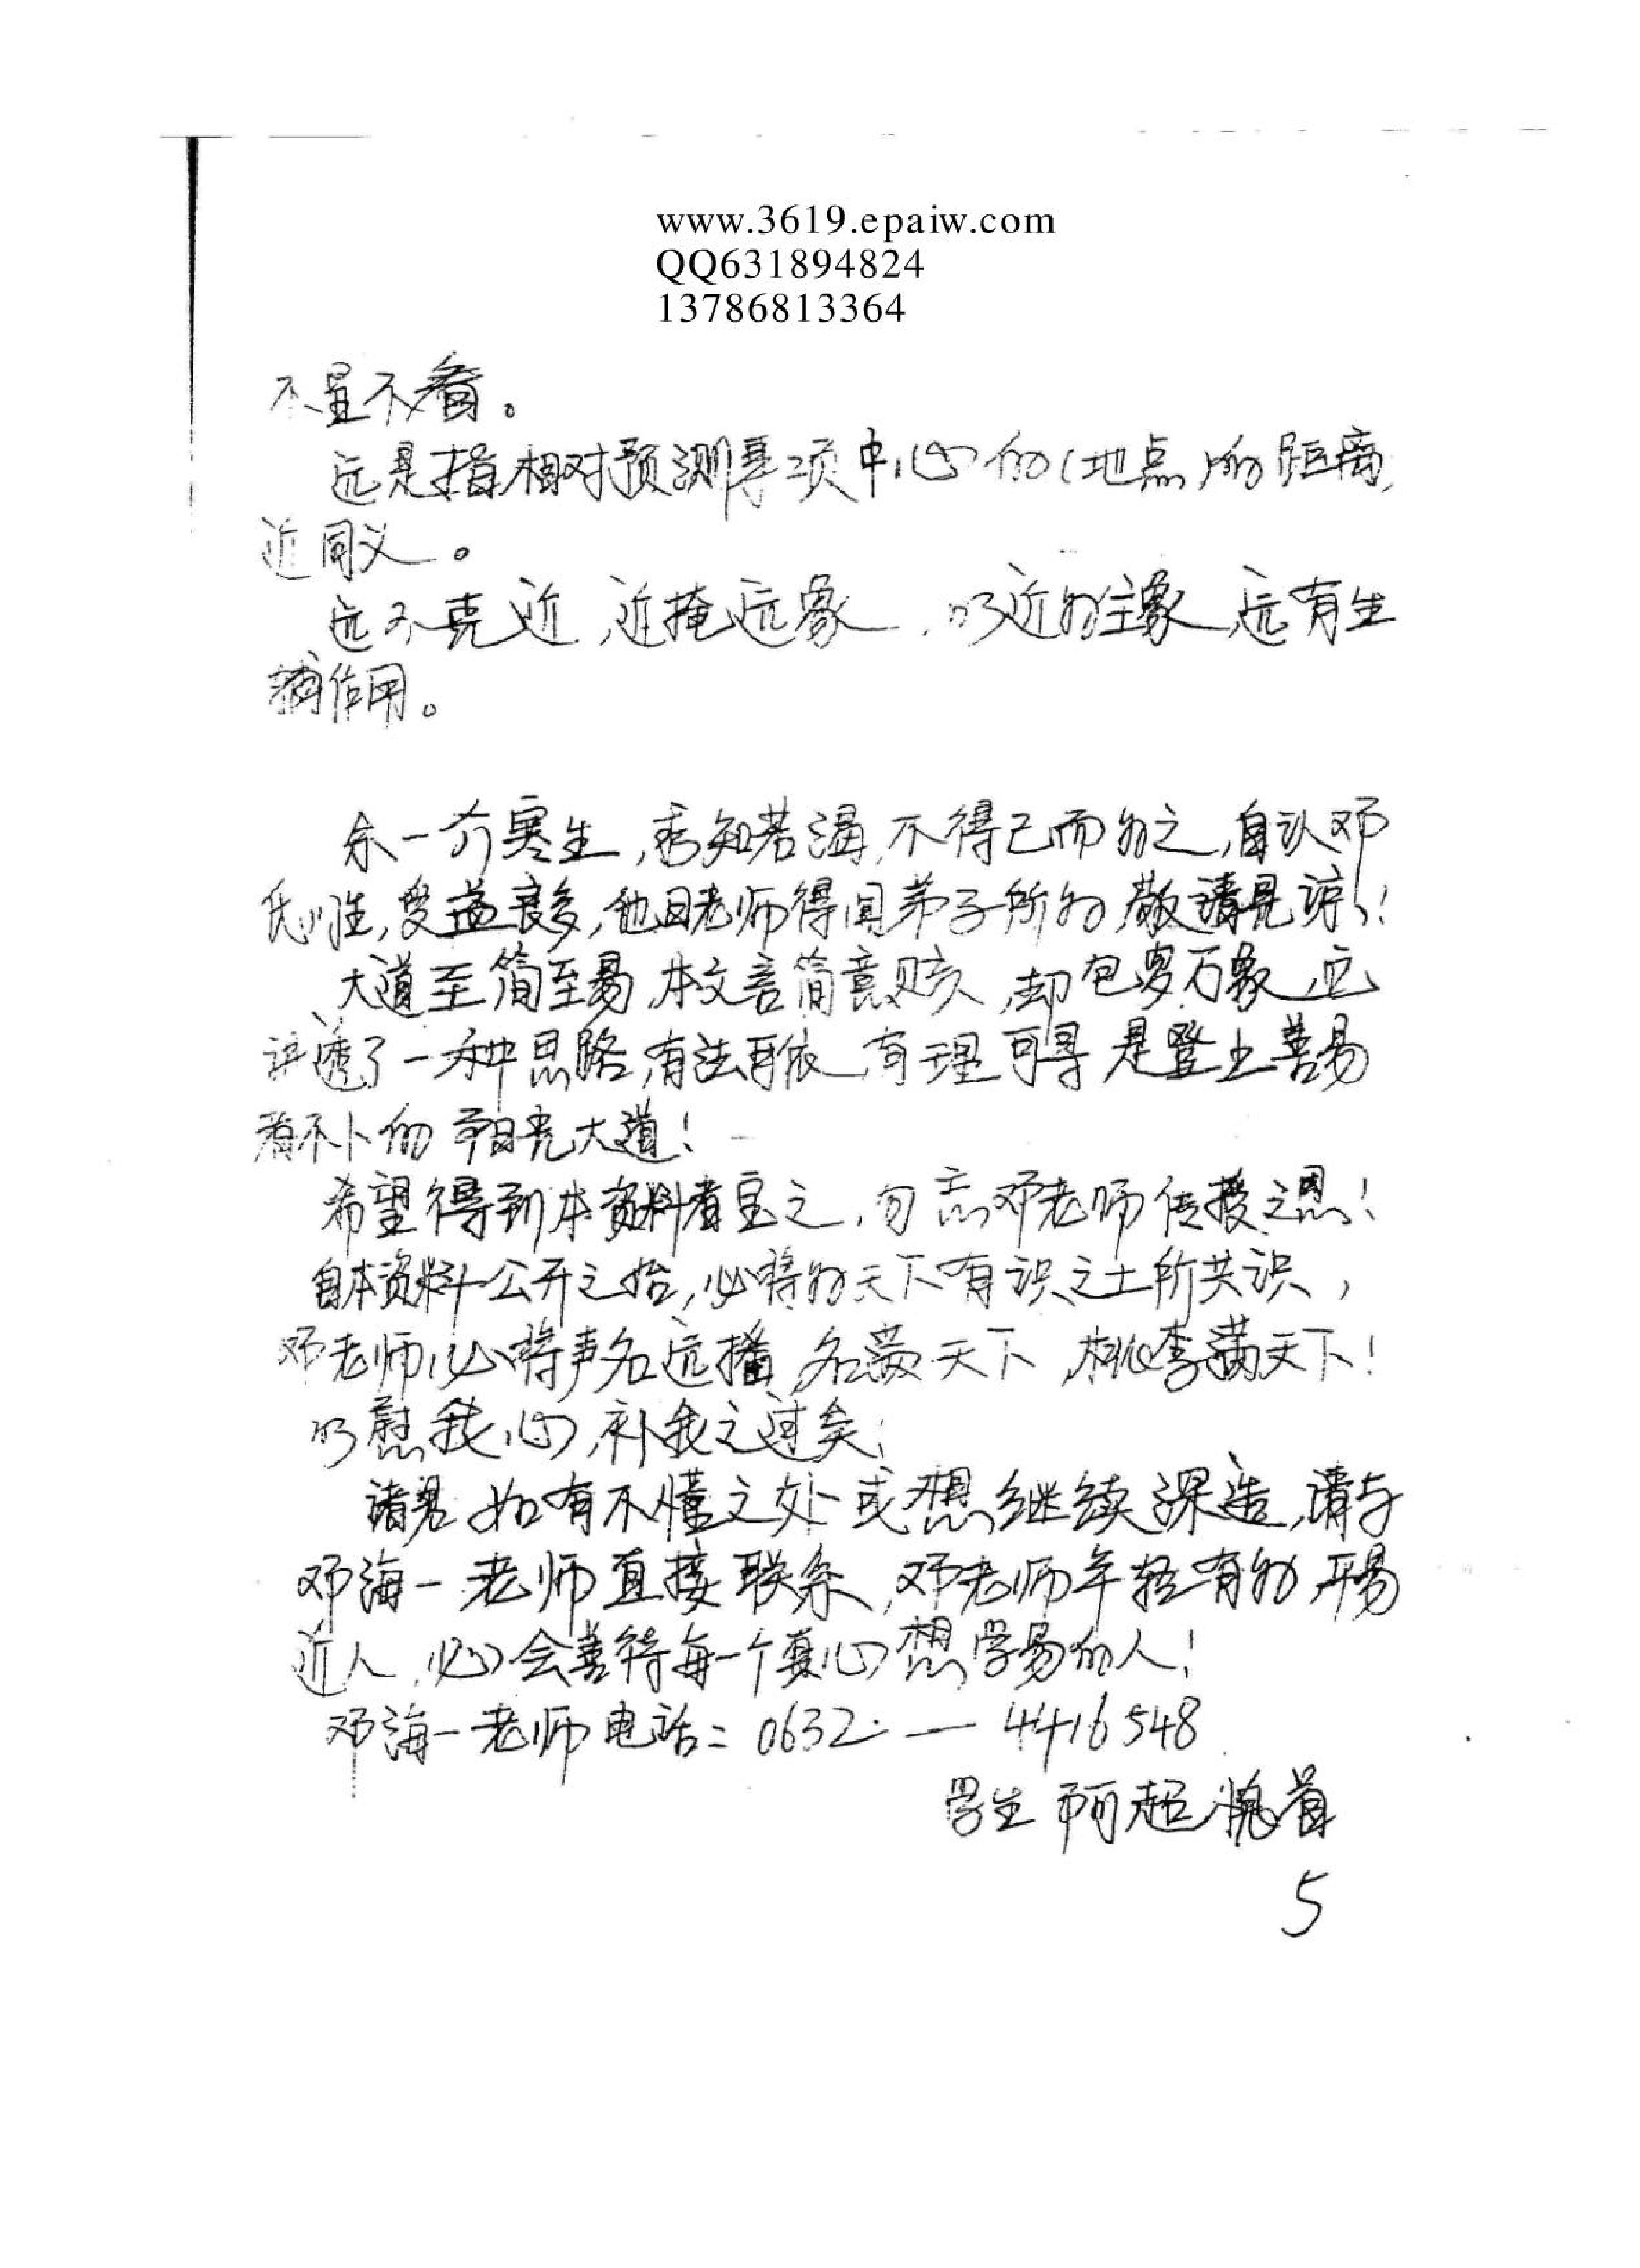 www.3619.epaiw.com
QQ631894824
13786813364
不显不看。
远是指相对预测事项中心的(地点)的距离,
近同义。
远不克近,近掩远象,以近为主象,远有生
辅作用。
余一介寒生,求知若渴,不得已而为之,自认邓
氏门生,受益良多,他日老师得闻弟子所为,敬请见谅!
大道至简至易,本文言简意赅,却包罗万象,正
讲透了一种思路,有法可依,有理可寻,是登上善易
者不卜的阳光大道!
希望得到本资料者宝之,勿忘邓老师传授之恩!
自本资料公开之始,必将为天下有识之士所共识,
邓老师必将声名远播,名震天下,桃李满天下!
以慰我心,补我之过矣!
诸君如有不懂之处或想继续深造,请与
邓海一老师直接联系,邓老师年轻有为,平易
近人,必会善待每一个真心想学易的人!
邓海一老师电话:0632—4416548
学生 阿超愧首
5